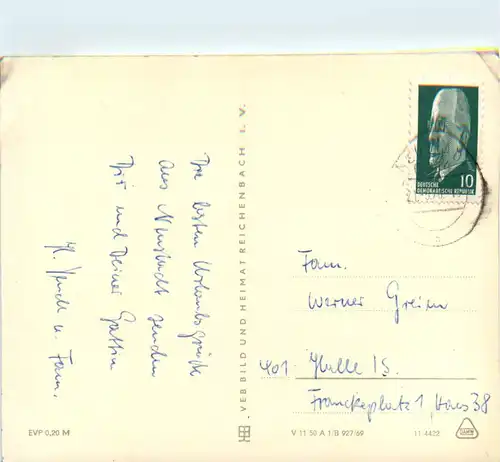 Die besten Urlaubsgrüße
aus Neustadt senden
Dir und Deiner Gattin
H. u. Fam.
VEB BILD UND HEIMAT REICHENBACH I. V.
10
DEUTSCHE
DEMOKRATISCHE REPUBLIK
Fam.
Werner Greim
401 Halle /S.
Franckeplatz 1, Haus 38
EVP 0,20 M
V 11 50 A 1/B 927/69
11 4422